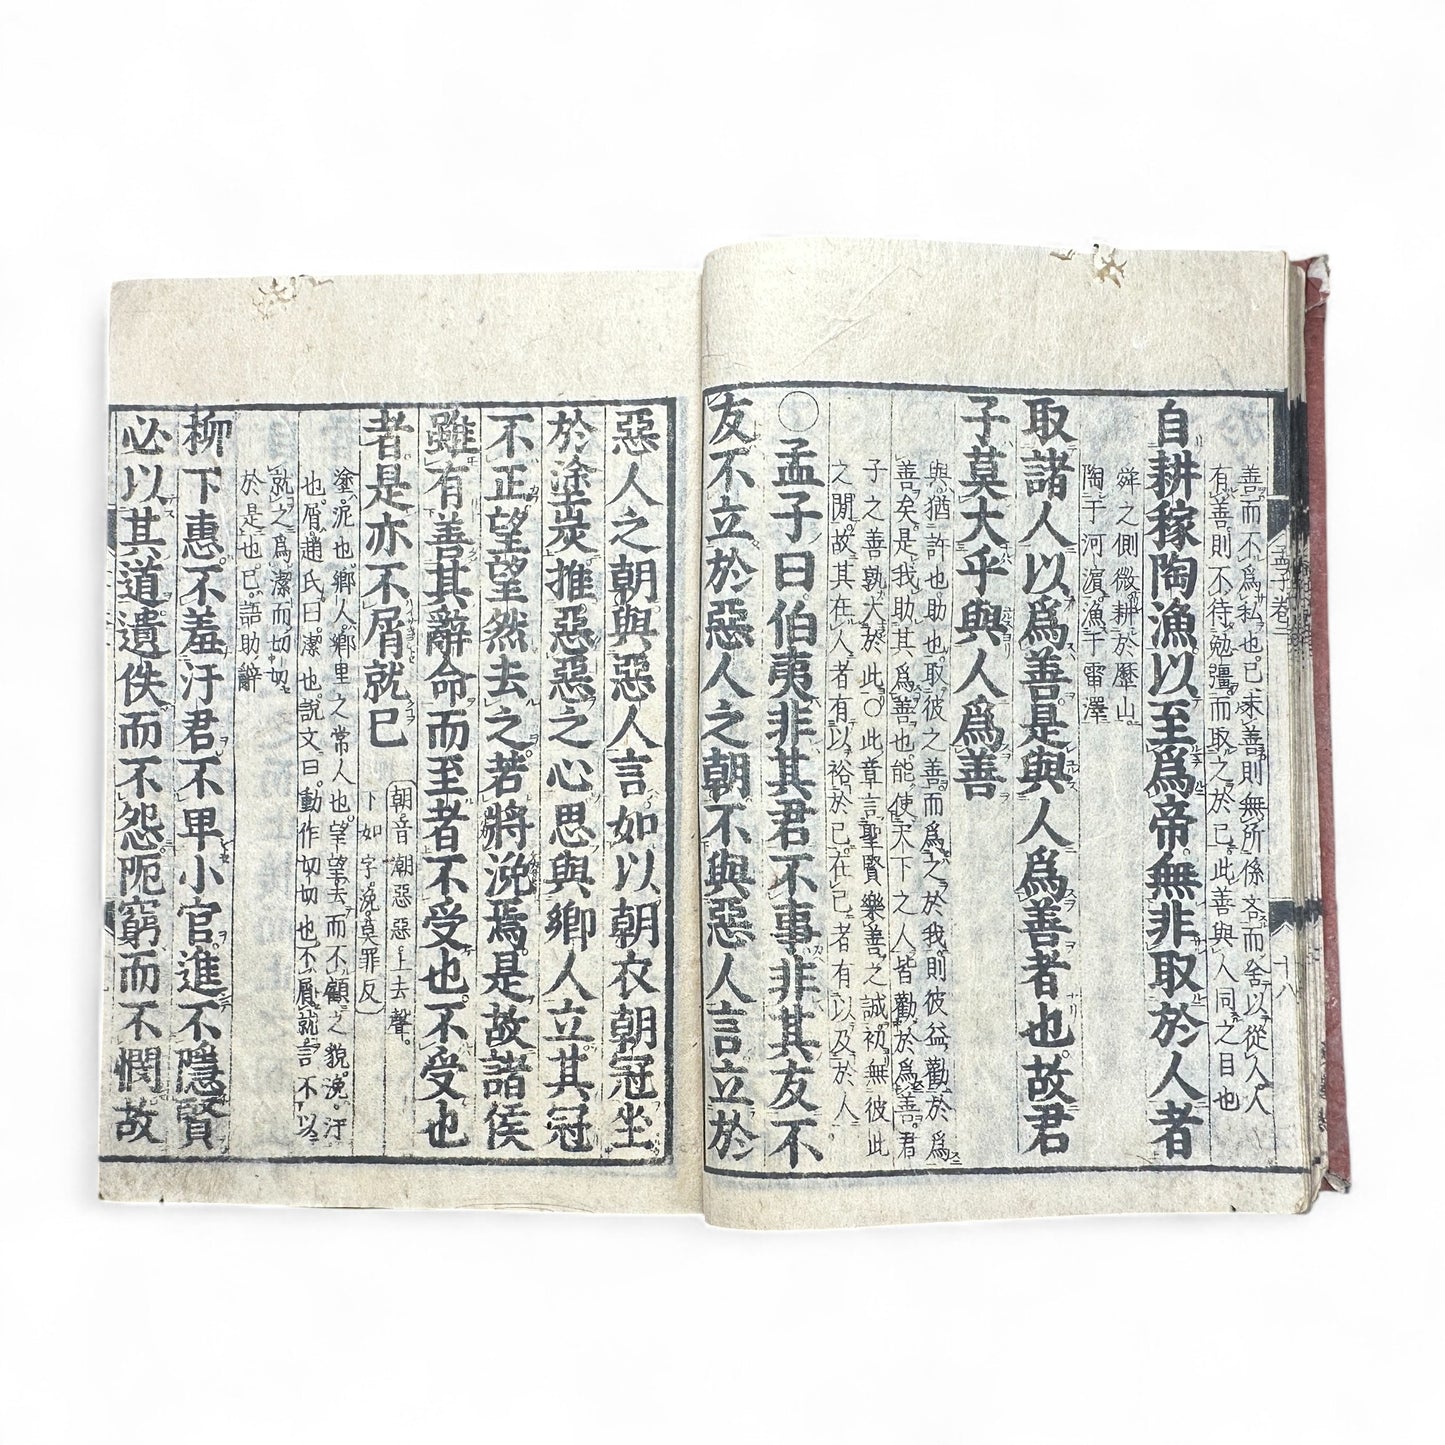 善而不爲私也已未善則無所係吝而舍以從人人
有善則不待勉彊而取之於己此善與人同之目也
自耕稼陶漁以至爲帝無非取於人者
舜之側微耕於歷山
陶于河濵漁于雷澤
取諸人以爲善是與人爲善者也故君
子莫大乎與人爲善
與猶許也助也取彼之善而爲之於我則彼益勸於爲
善矣是我助其爲善也能使天下之人皆勸於爲善君
子之善孰大於此〇此章言聖賢樂善之誠初無彼此
之閒故其在人者有以裕於己在己者有以及於人
〇孟子曰伯夷非其君不事非其友不
友不立於惡人之朝不與惡人言立於
惡人之朝與惡人言如以朝衣朝冠坐
於塗炭推惡惡之心思與鄉人立其冠
不正望望然去之若將浼焉是故諸侯
雖有善其辭命而至者不受也不受也
者是亦不屑就已
朝音潮惡惡上去聲
下如字浼莫罪反
塗泥也鄉人鄉里之常人也望望去而不顧之貌浼汙
也屑趙氏曰潔也說文曰動作切切也不屑就言不以
就之爲潔而切切
於是也已語助辭
柳下惠不羞汙君不卑小官進不隱賢
必以其道遺佚而不怨阨窮而不憫故
孟子卷二
十八